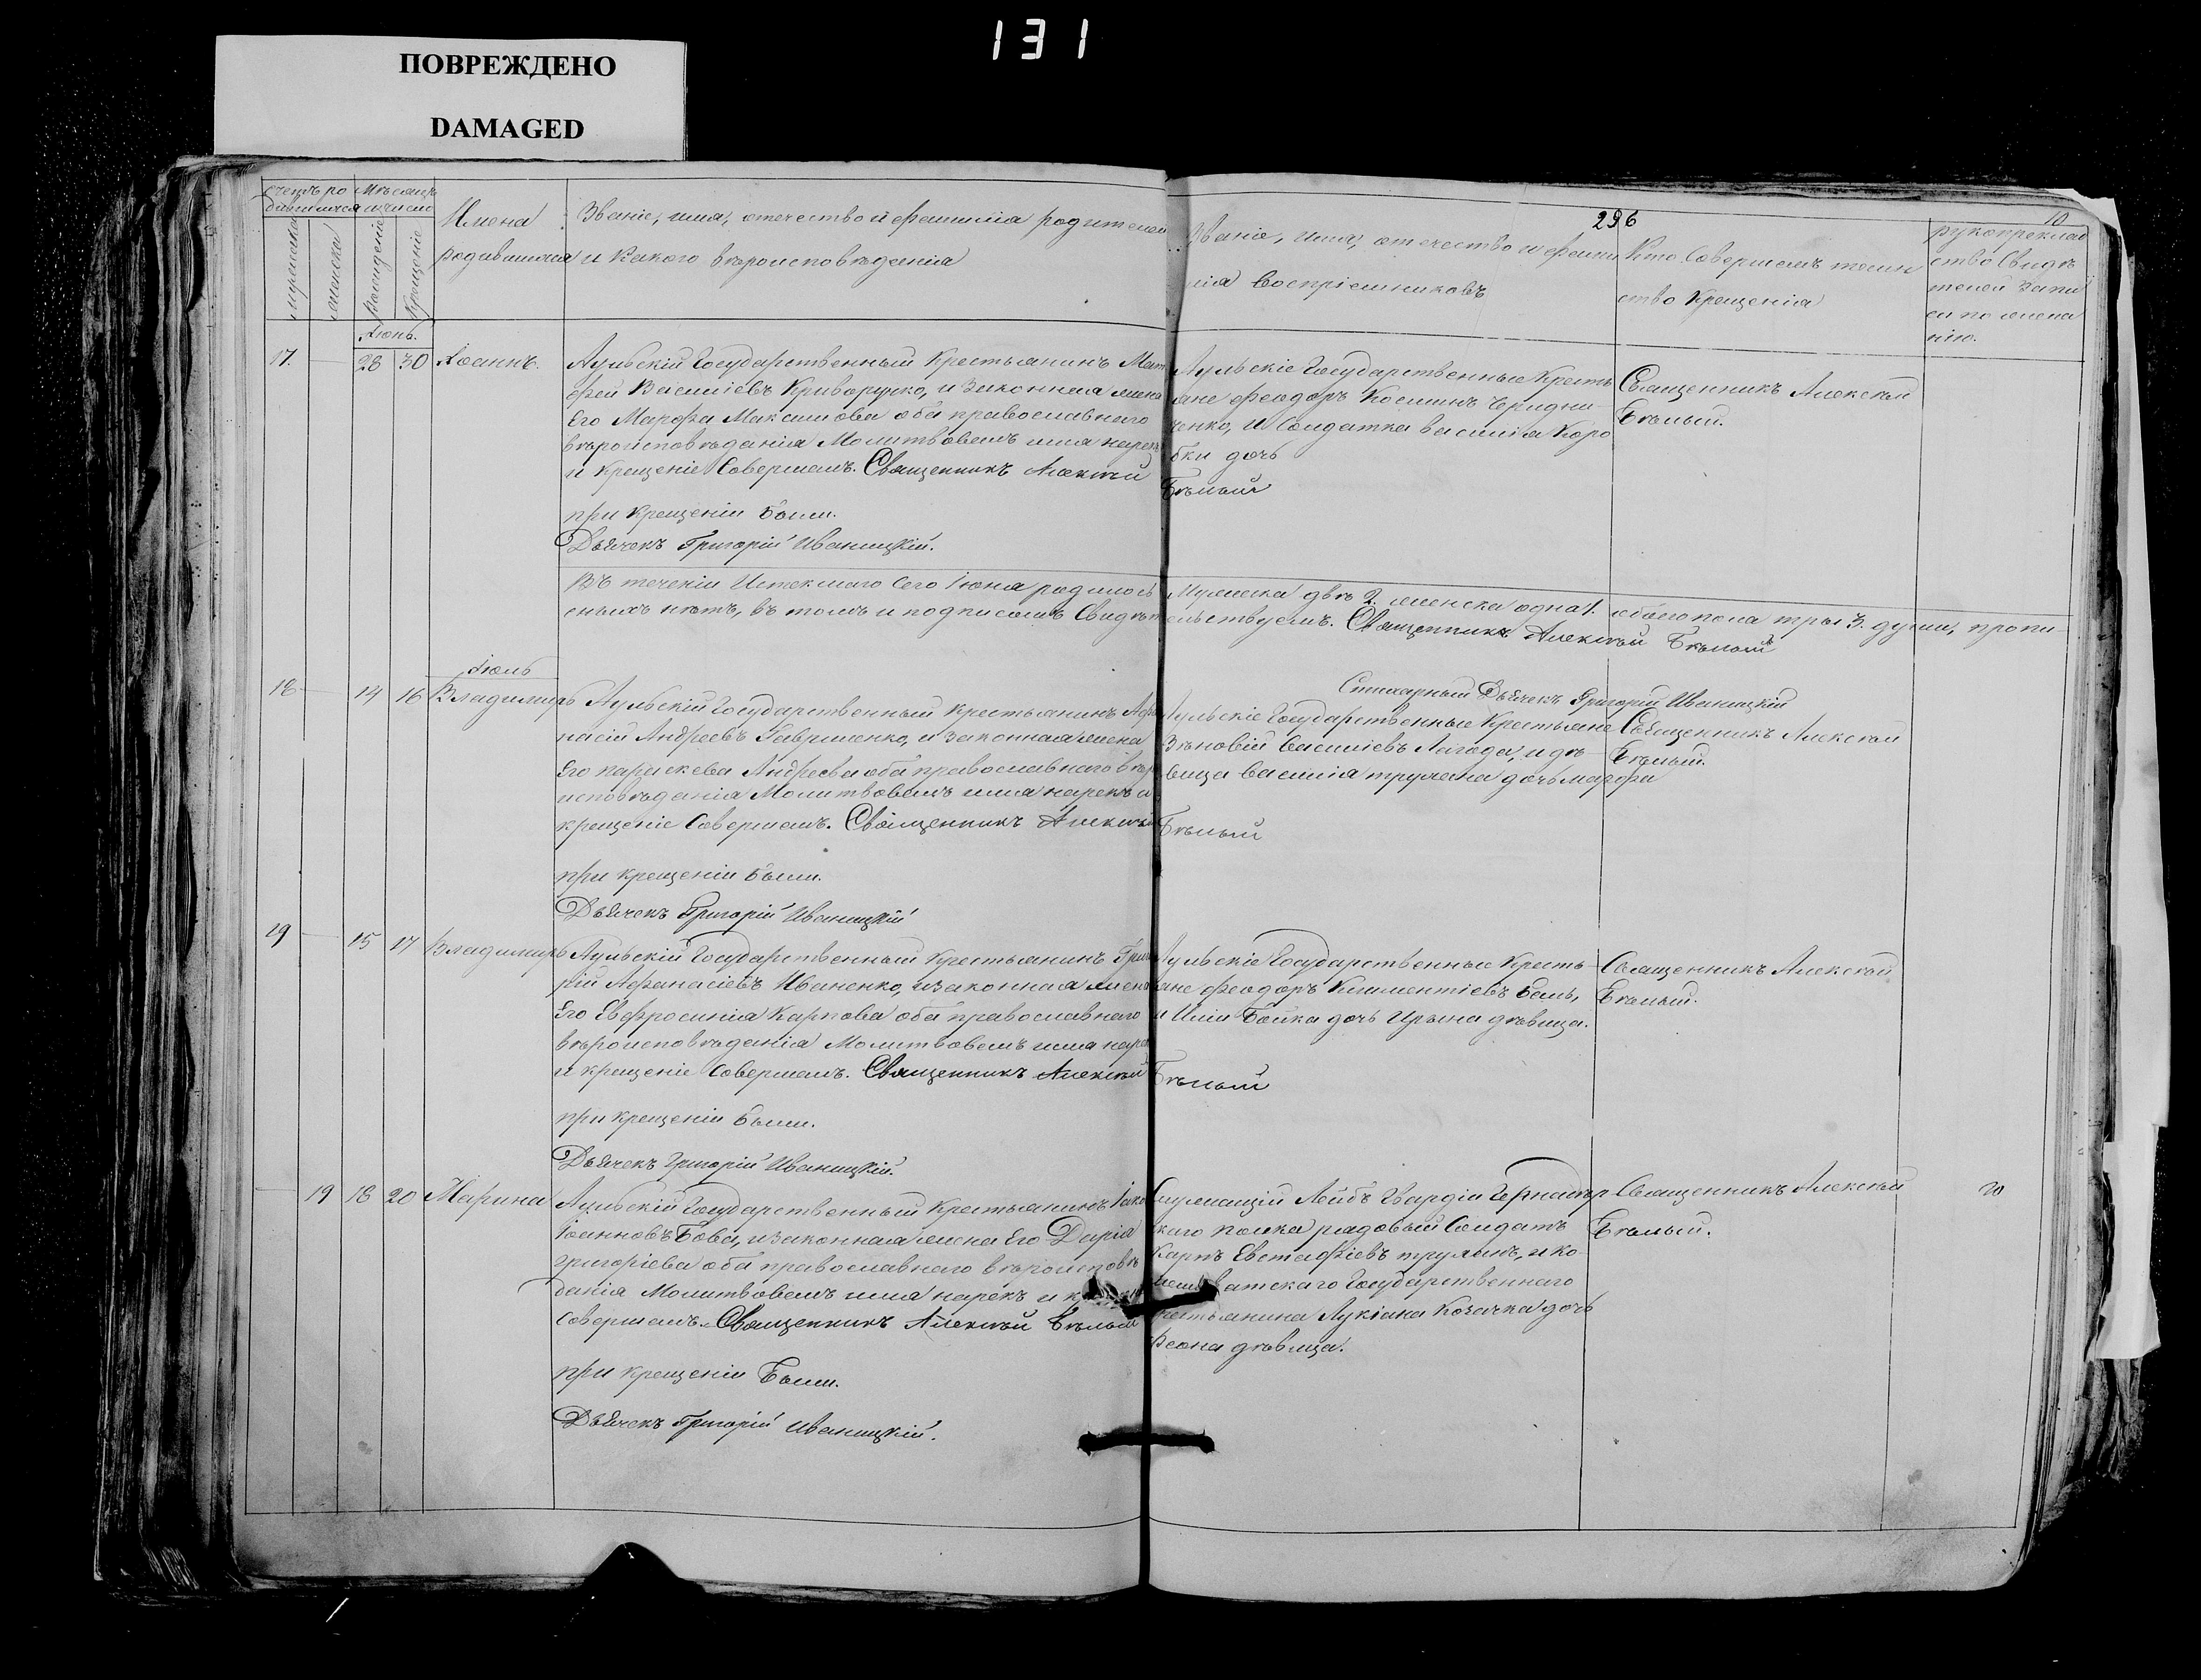 131
ПОВРЕЖДЕНО
DAMAGED
296
10
счетъ ро
дившихся
Мѣсяцъ
и число
мужеска
женска
рожденіе
крещеніе
Имена
родившихся
Званіе, имя, отечество и фамилія родителей
и какого вѣроисповѣданія
Званіе, имя, отечество и фами
лія воспріемниковъ
Кто совершалъ таин
ство крещенія
рукоприклад
ство свидѣ
телей запи
си по жела
нію.
Іюнь.
17.
28
30
Іоаннъ.
Аульскій Государственный крестьянинъ Мат
фей Василіевъ Криворучко, и законная жена
его Марфа Максимова оба православнаго
вѣроисповѣданія Молитвовалъ имя нарекъ
и крещеніе совершалъ. Священникъ Алексѣй
Бѣлый
при крещеніи были.
Дьячекъ Григорій Иваницкій.
Аульскіе Государственные кресть
яне Феодоръ Косминъ Черидни
ченко, и солдатка Василія Коро
бки дочь
Священникъ Алексѣй
Бѣлый.
Въ теченіи истекшаго сего Іюня родилось мужеска двѣ 2. женска одна 1. обоего пола тры 3. души, пропи
сныхъ нѣтъ, въ томъ и подписомъ свидѣтельствуемъ. Священникъ Алексѣй Бѣлый
Стихарный Дьячекъ Григорій Иваницкій
Іюль
18
14
16
Владимиръ
Аульскій Государственный крестьянинъ Афа
насій Андреевъ Гавриленко, и законная жена
его Параскева Андреева оба православнаго вѣро
исповѣданія Молитвовалъ имя нарекъ и
крещеніе совершалъ. Священникъ Алексѣй
Бѣлый
при крещеніи были.
Дьячекъ Григорій Иваницкій
Аульскіе Государственные крестьяне
Зѣновій Василіевъ Лагода, и дѣ
вица Василія дочь Марфа
Священникъ Алексѣй
Бѣлый.
19
15
17
Владимиръ
Аульскій Государственный крестьянинъ Григо
рій Афанасіевъ Иваненко, и законная жена
его Евфросинія Карпова оба православнаго
вѣроисповѣданія Молитвовалъ имя нарекъ
и крещеніе совершалъ. Священникъ Алексѣй
Бѣлый
при крещеніи были.
Дьячекъ Григорій Иваницкій.
Аульскіе Государственные кресть
яне Феодоръ Климентіевъ
и Иліи Бойка дочь Ирына дѣвица.
Священникъ Алексѣй
Бѣлый.
19
18
20
Марина
Аульскій Государственный крестьянинъ Іако
Іоанновъ Бова, и законная жена его Дарія
Григоріева оба православнаго вѣроисповѣ
данія Молитвовалъ имя нарекъ и
совершалъ. Священникъ Алексѣй Бѣлый
при крещеніи были.
Дьячекъ Григорій Иваницкій.
Служащій Лейбъ Гвардіи
каго полка рядовый солдатъ
Карпъ Евстафіевъ и
Государственнаго
крестьянина Лукіана Козачка дочь
Феона дѣвица.
Священникъ Алексѣй
Бѣлый.